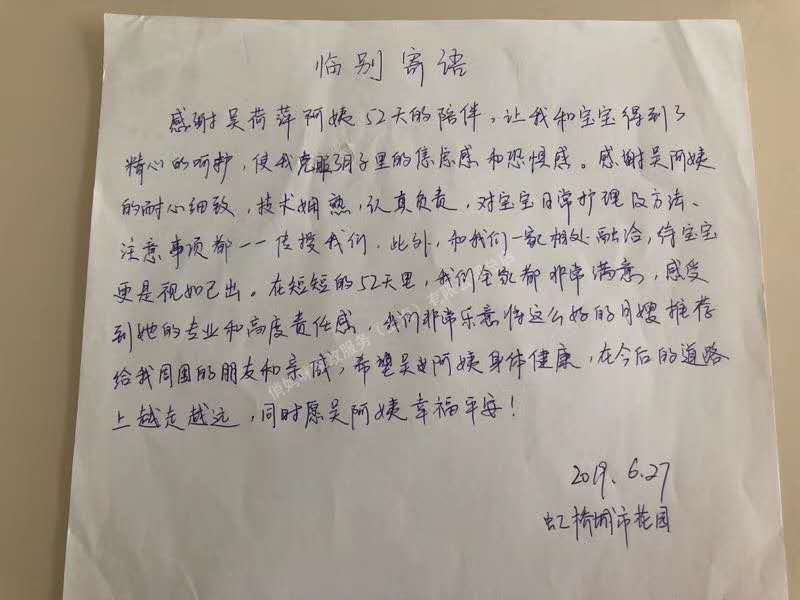 临别寄语
感谢吴荷萍阿姨52天的陪伴，让我和宝宝得到了
精心的呵护，使我克服了月子里的焦虑感和恐惧感。感谢吴阿姨
的耐心细致，技术娴熟，认真负责，对宝宝日常护理及方法、
注意事项都一一传授我们，此外，和我们一家相处融洽，待宝宝
更是视如己出。在短短的52天里，我们全家都非常满意，感受
到她的专业和高度责任感，我们非常乐意将这么好的月嫂推荐
给我周围的朋友和亲戚，希望吴阿姨身体健康，在今后的道路
上越走越远，同时愿吴阿姨幸福平安！
2019.6.27
虹桥城市花园